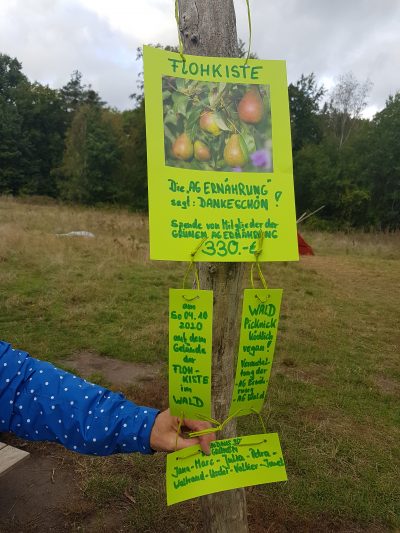 FLOHKISTE
Die „AG ERNÄHRUNG"
sagt: DANKESCHÖN!
Spende von Mitglieder der
GRÜNEN AG ERNÄHRUNG
330.-€
am
So 04.10
2020
auf dem
Gelände
der
FLOH-
KISTE
im
WALD
WALD
PICKNICK
köstlich
vegan!
Veranstal-
tung der
AG Ernäh-
rung
GRÜNEN
Jana-Marc-Julia-Petra-
Waltraud-Uschi-Volker-